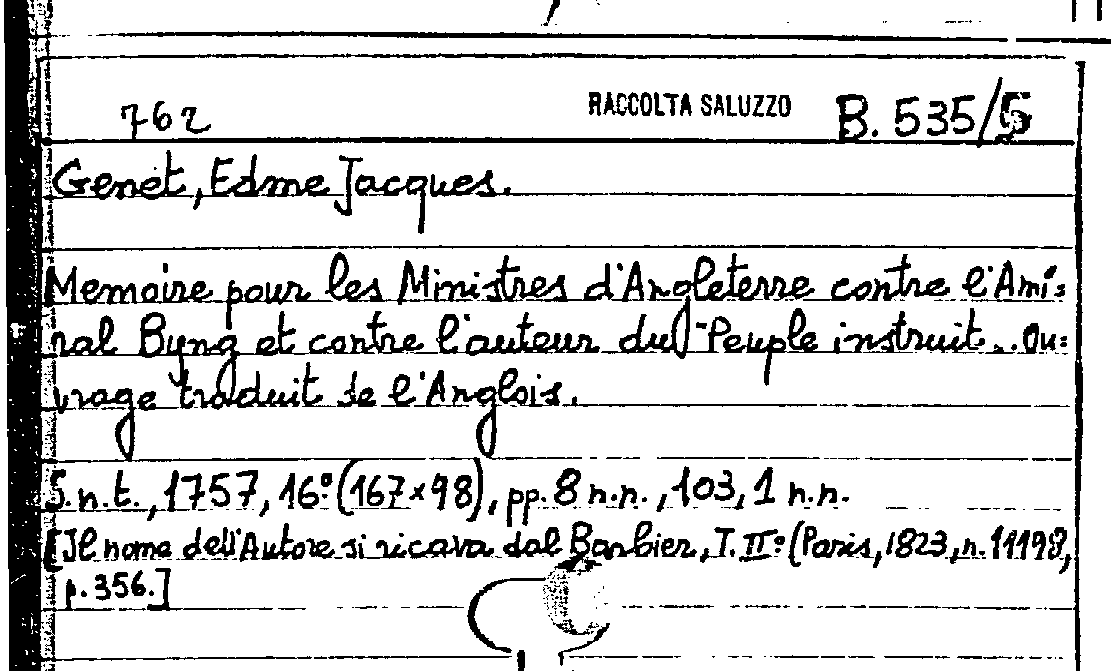 762 RACCOLTA SALUZZO B. 535/5
Genet, Edme Jacques.
Memoire pour les Ministres d'Angleterre contre l'Ami=
ral Byng et contre l'auteur du Peuple instruit... Ou=
vrage traduit de l'Anglois.
S.n.t., 1757, 16° (167×98), pp. 8 n.n., 103, 1 n.n.
[Il nome dell'Autore si ricava dal Barbier, T. II° (Paris, 1823, n. 11198,
p. 356.]